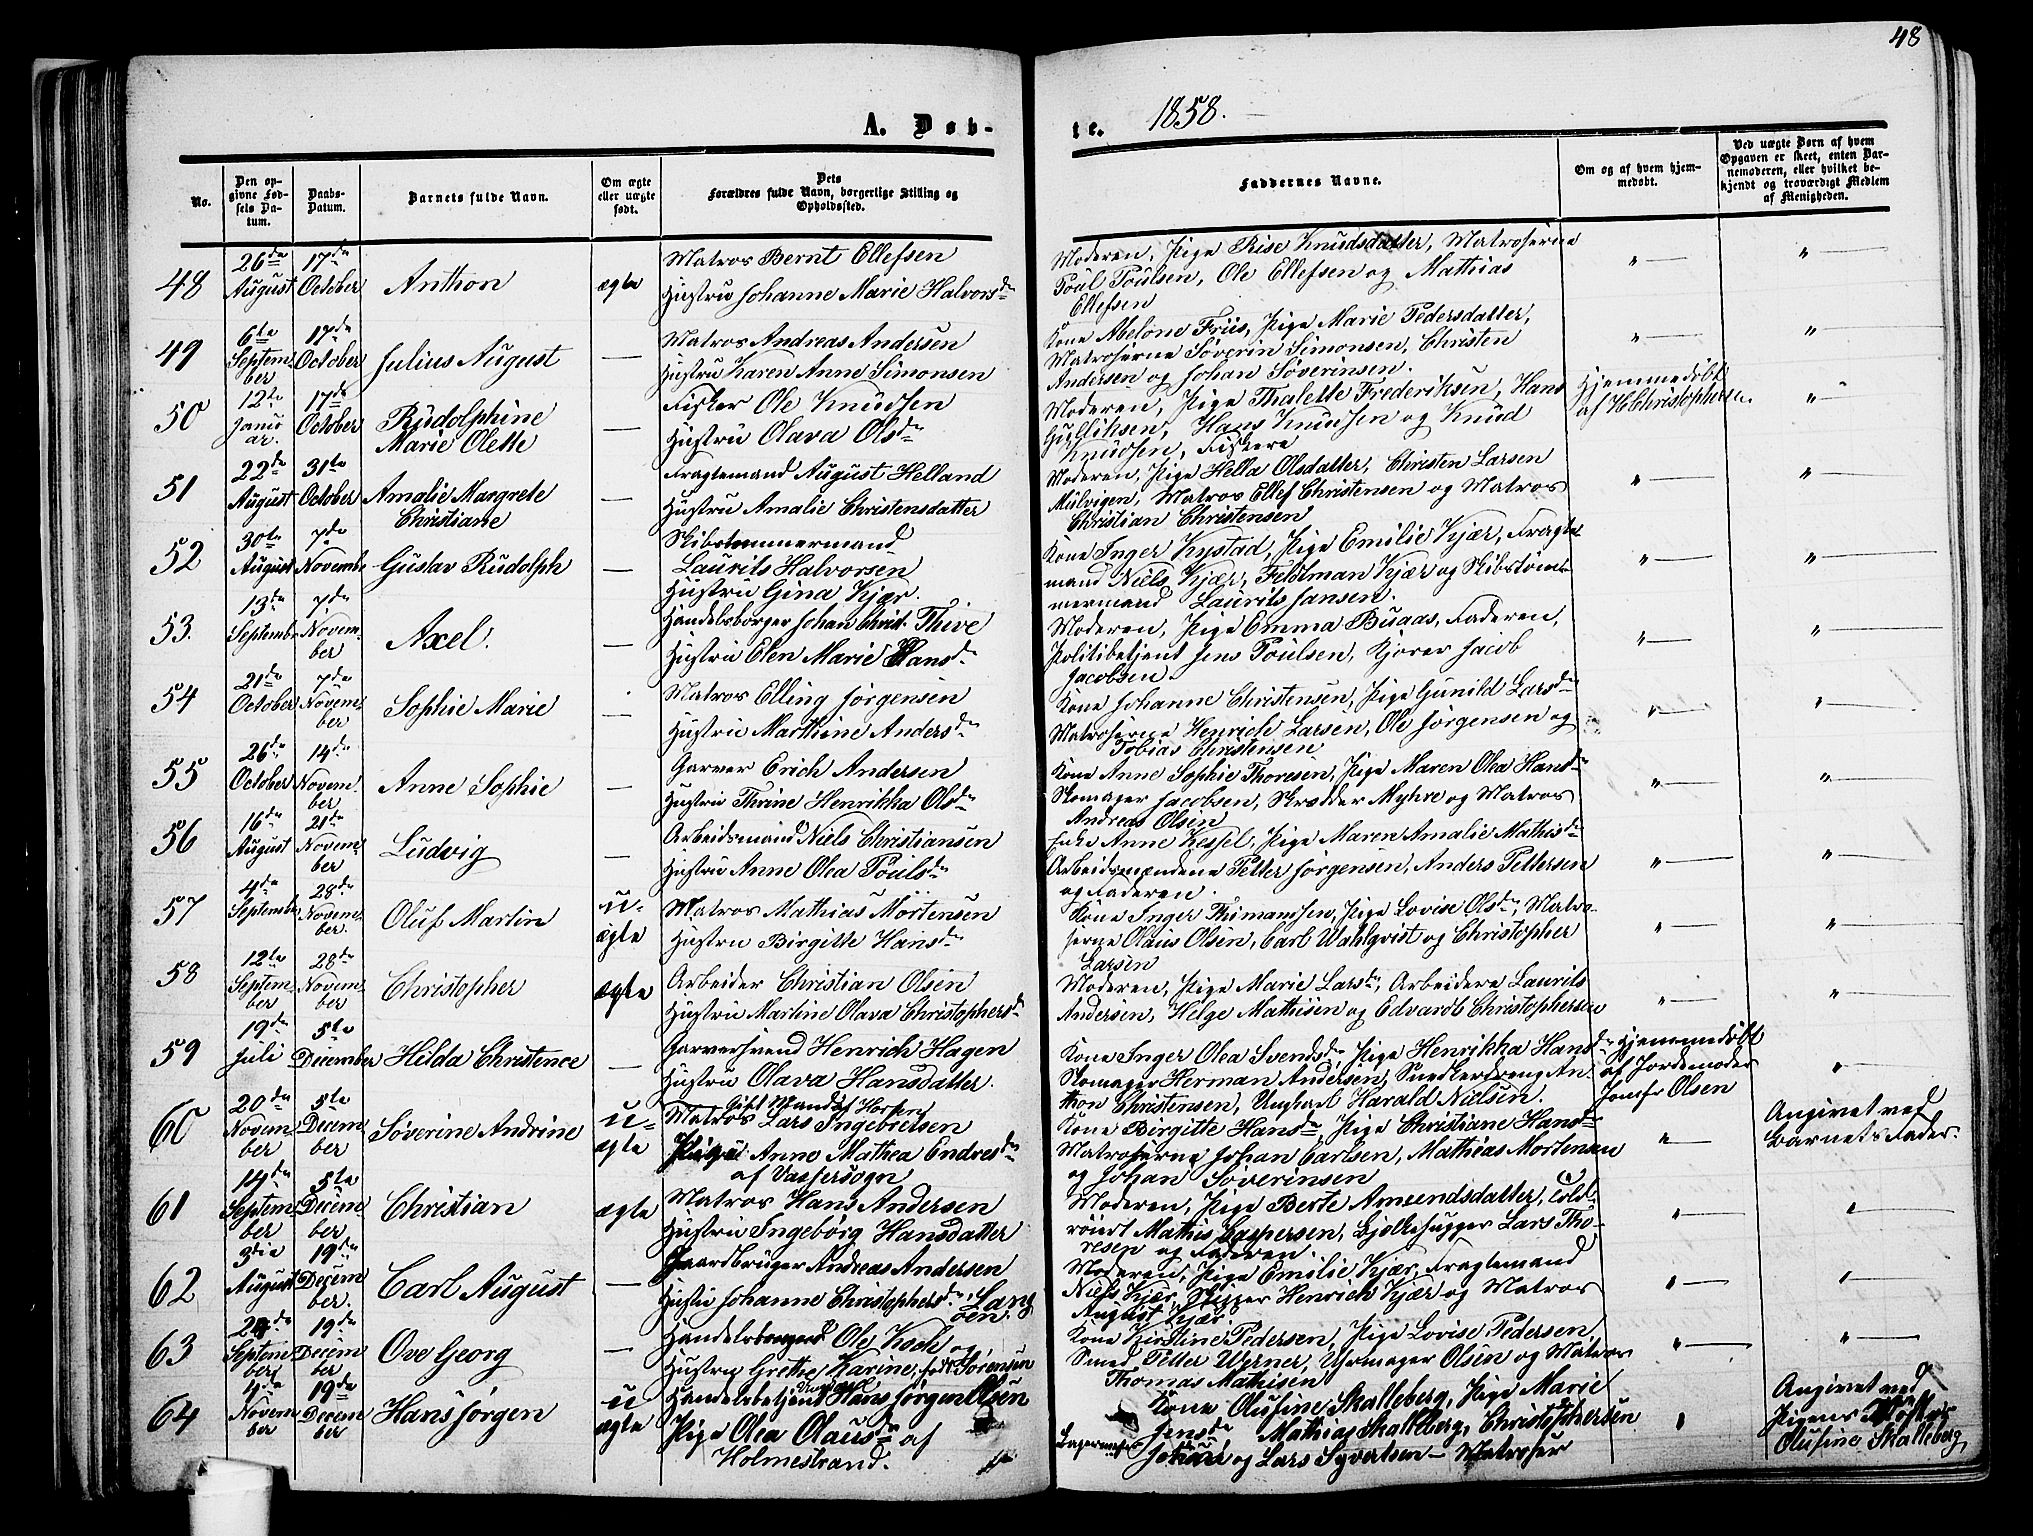 48
A. Døb-
te. 1858.
No.
Den op-
givne Fød-
sels Da-
tum.
Daabs-
Datum.
Barnets fulde Navn.
Om ægte
eller uægte
født.
Dets
Forældres fulde Navn, borgerlige Stilling og
Opholdssted.
Faddernes Navne.
Om og af hvem hjem-
medøbt.
Ved uægte Børn af hvem
Opgaven er skeet, enten Bar-
nemoderen, eller hvilket be-
kjendt og troværdigt Medlem
af Menigheden.
48
26de
August
17de
October
Anthon
ægte
Matros Bernt Ellefsen
Hustru Johanne Marie Halvorsdr
Moderen, Pige Rise Knudsdatter, Matroserne
Poul Poulsen, Ole Ellefsen og Mathias
Ellefsen
" —
" —
49
6te
Septem-
ber
17de
October
Julius August
—
Matros Andreas Andersen
Hustru Karen Anne Simonsen
Kone Abelone Friis, Pige Marie Pedersdatter,
Matroserne Søverin Simonsen, Christen
Andersen og Johan Søverinsen.
" —
"
50
12te
Janu
ar.
17de
October
Rudolphine
Marie Olette
—
Fisker Ole Knudsen
Hustru Olava Olsdr
Moderen, Pige Thalette Frederiksen, Hans
Gulliksen, Hans Knudsen og Knud
Knudsen, Fiskere
Hjemmedøbt
af H Christophersen.
" —
51
22de
August
31te
October
Amalie Margrete
Christiane
—
Fragtemand August Helland
Hustru Amalie Christensdatter
Moderen, Pige Hella Olsdatter, Christen Larsen
Mulvigen, Matros Ellef Christensen og Matros
Christian Christensen
" —
" —
52
30te
August
7de
Novembr
Gustav Rudolph
—
Skibstømmermand
Laurits Halvorsen
Hustru Gina Kjær.
Kone Inger Kystad, Pige Emilie Kjær, Fragte
mand Niels Kjær, Feldtman Kjær og Skibstøm-
mermand Laurits Jansen.
" —
" —
53.
13de
Septembr
7de
Novem-
ber
Axel.
—
Handelsborger Johan Christ. Thive
Hustru Elen Marie Hansdr
Moderen, Pige Emma Buaas, Faderen,
Politibetjent Jens Poulsen, Kjører Jacob
Jacobsen.
" —
" —
54
21de
October
7de
Novem-
ber
Sophie Marie
—
Matros Elling Jørgensen
Hustru Marthine Andersdr
Kone Johanne Christensen, Pige Gunild Larsdr
Matroserne Henrich Larsen, Ole Jørgensen og
Tobias Christensen
" —
" —
55
26de
October
14de
Novem-
ber
Anne Sophie
—
Garver Erich Andersen
Hustru Thrine Henrikka Olsdr
Kone Anne Sophie Thoresen, Pige Maren Olea Hansdr
Skomager Jacobsen, Skrædder Myhre og Matros
Andreas Olsen
" —
" —
56
16de
August
21de
Novem-
ber
Ludvig
—
Arbeidsmand Niels Christiansen
Hustru Anne Olea Poulsdr
Enke Anne Kessel, Pige Maren Amalie Mathisdr
Arbeidsmændene Petter Jørgensen, Anders Pettersen
og Faderen.
" —
" —
57
4de
Septembr
28de
Novem-
ber.
Oluf Martin
u-
ægte
Matros Mathias Mortensen
Hustru Birgitte Hansdr
Kone Inger Thimansen, Pige Lovise Olsdr, Matro-
serne Olaus Olsen, Carl Wahlqvist og Christopher
Larsen
" —
" —
58
12te
Septem-
ber
28de
Novem-
ber
Christopher
ægte
Arbeider Christian Olsen
Hustru Martine Olava Christophersdr
Moderen, Pige Marie Larsdr, Arbeidere Laurits
Andersen, Helge Mathisen og Edvardt Christophersen
" —
" —
59
19de
Juli
5te
December
Hilda Christence
—
Garversvend Henrich Hagen
Hustru Olava Hansdatter.
Kone Inger Olea Svendsdr, Pige Henrikka Hansdr
Skomager Herman Andersen, Snedkerdreng An-
thon Christensen, Ungkarl Harald Nielsen.
Hjemmedøbt
af Jordemoder
Jomfr Olsen
" —
60
20de
Novem-
ber
5te
Decem
ber
Søverine Andrine
u-
ægte
Gift Mand af Horten
Matros Lars Ingebretsen
Pige Anne Mathea Endresdr
af Vassersogn
Kone Birgitte Hansdr, Pige Christiane Hansdr
Matroserne Johan Carlsen, Mathias Mortensen
og Johan Søverinsen
" —
Angivet ved
Barnets Fader.
61
14de
Septem-
ber
5te
Decem-
ber
Christian
ægte
Matros Hans Andersen
Hustru Ingeborg Hansdatter
Moderen, Pige Berte Amundsdatter, Told-
roiert Mathis Caspersen, Bjelkehugger Lars Tho-
resen og Faderen.
" —
" —
62
3die
August
19de
Decem
ber.
Carl August
—
Gaardbruger Andreas Andersen
Hustru Johanne Christophersdr, Lang
öen.
Moderen, Pige Emilie Kjær, Fragtemand
Niels Kjær, Skipper Henrich Kjær og Matros
August Kjær.
" —
" —
63
Septem
ber
19de
Decem
ber
Ove Georg
—
Ole Koch og
Hustru Grethe Karine, født Sørensen
Kone Kirstine Pedersen, Pige Lovise Pedersen,
Smed Petter Werner, Uhrmager Olsen og Matros
Thomas Mathisen
" —
" —
64
4de
Novem
ber
19de
Decem
ber
Hans Jørgen
u
ægte
Ungkarl
Handelsbetjent Hans Jørgen Olsen
Pige Olea Olausdr af
Holmestrand.
Kone Olufine Skalleberg, Pige Marie
Jensdr Mathias Skalleberg, Christophersen
og Lars Syvertsen — Matroser
"
Angivet ved
Pigens Søster
Olufine Skalleberg